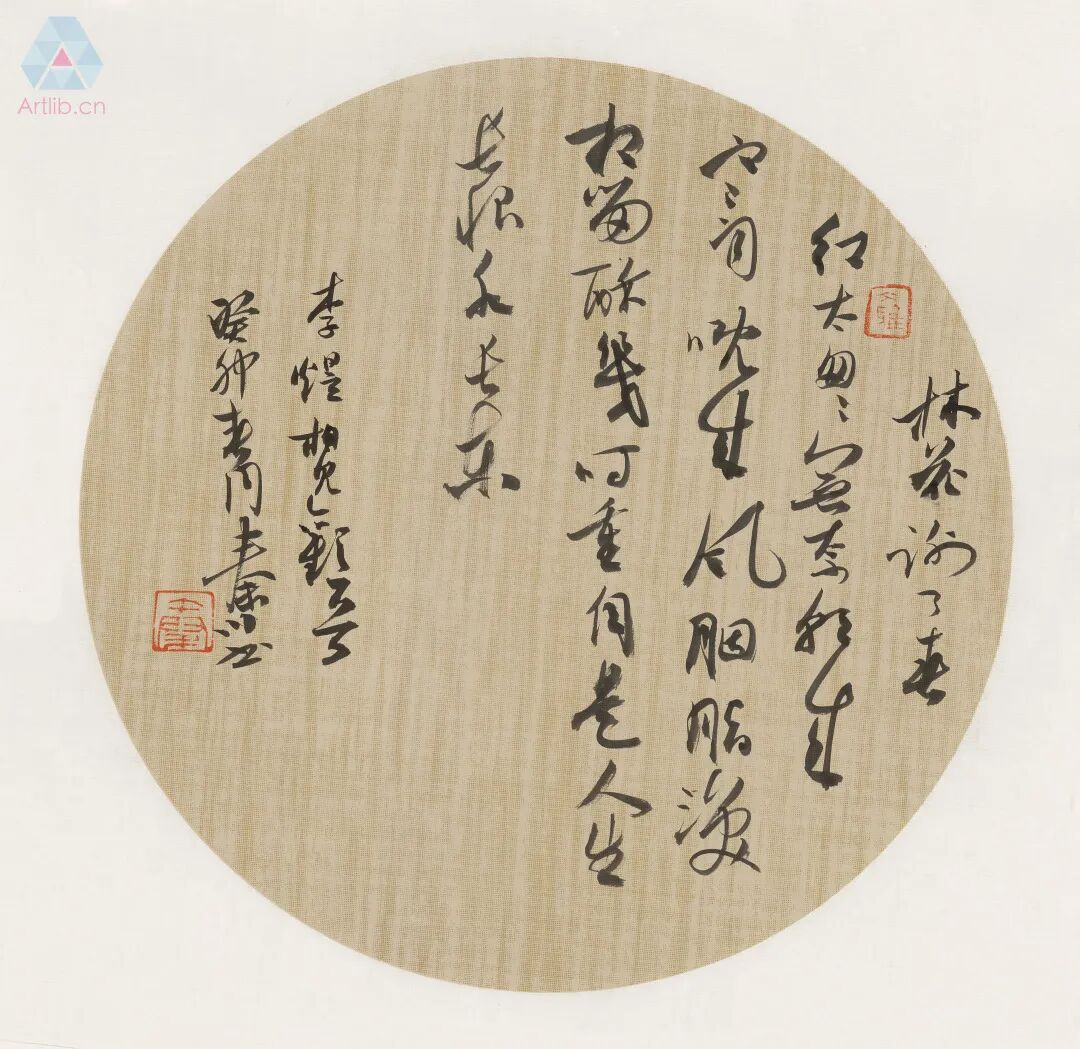 Artlib.cn
林花谢了春
红太匆〻無奈朝来
寒雨晚来风胭脂淚
相留醉幾时重自是人生
长恨水长东
李煜相見歡
癸卯春